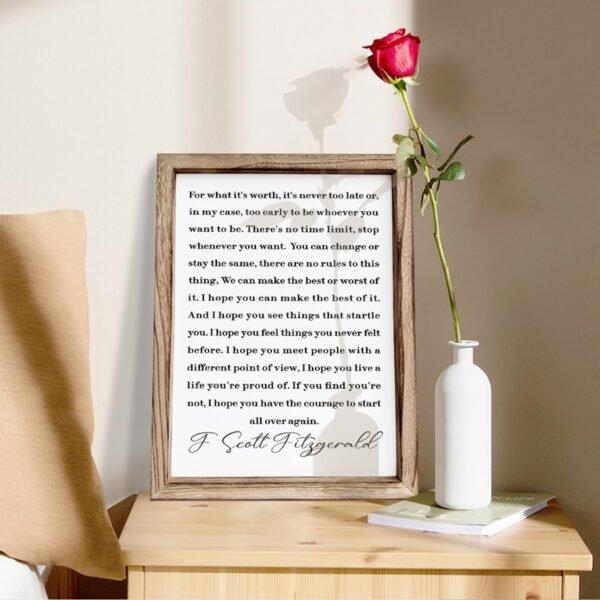 For what it's worth, it's never too late or,
in my case, too early to be whoever you
want to be. There's no time limit, stop
whenever you want. You can change or
stay the same, there are no rules to this
thing, We can make the best or worst of
it. I hope you can make the best of it.
And I hope you see things that startle
you. I hope you feel things you never felt
before. I hope you meet people with a
different point of view, I hope you live a
life you're proud of. If you find you're
not, I hope you have the courage to start
all over again.
F Scott Fitzgerald